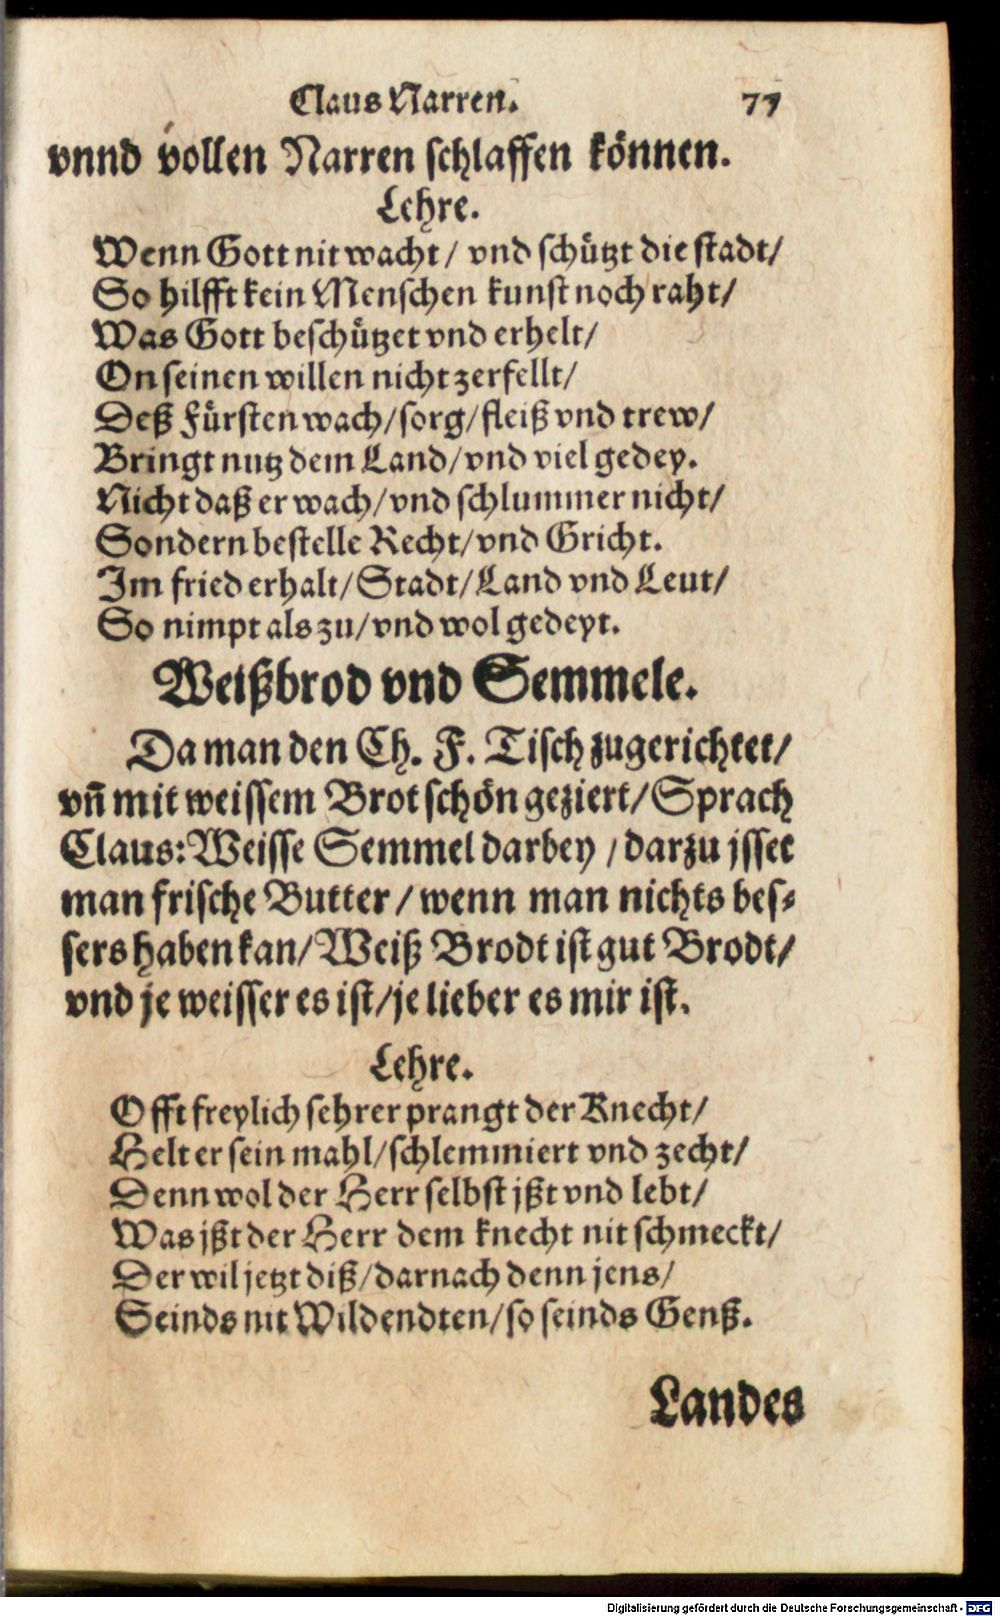 Claus Narren. 77
vnnd vollen Narren schlaffen können.
Lehre.
Wenn Gott nit wacht / vnd schützt die stadt/
So hilfft kein Menschen kunst noch raht/
Was Gott beschützet vnd erhelt/
On seinen willen nicht zerfellt/
Deß Fürsten wach/sorg/fleiß vnd trew/
Bringt nutz dem Land/vnd viel gedey.
Nicht daß er wach/vnd schlummer nicht/
Sondern bestelle Recht/vnd Gricht.
Im fried erhalt/Stadt/Land vnd Leut/
So nimpt als zu/vnd wol gedeyt.
Weißbrod vnd Semmele.
Da man den Ch. F. Tisch zugerichtet/
vñ mit weissem Brot schön geziert/Sprach
Claus: Weisse Semmel darbey / darzu jsset
man frische Butter / wenn man nichts bes-
sers haben kan/Weiß Brodt ist gut Brodt/
vnd je weisser es ist/je lieber es mir ist.
Lehre.
Offt freylich sehrer prangt der Knecht/
Helt er sein mahl/schlemmiert vnd zecht/
Denn wol der Herr selbst jßt vnd lebt/
Was jßt der Herr dem knecht nit schmeckt/
Der wil jetzt diß/darnach denn jens/
Seinds nit Wildendten/so seinds Genß.
Landes
Digitalisierung gefördert durch die Deutsche Forschungsgemeinschaft - DFG